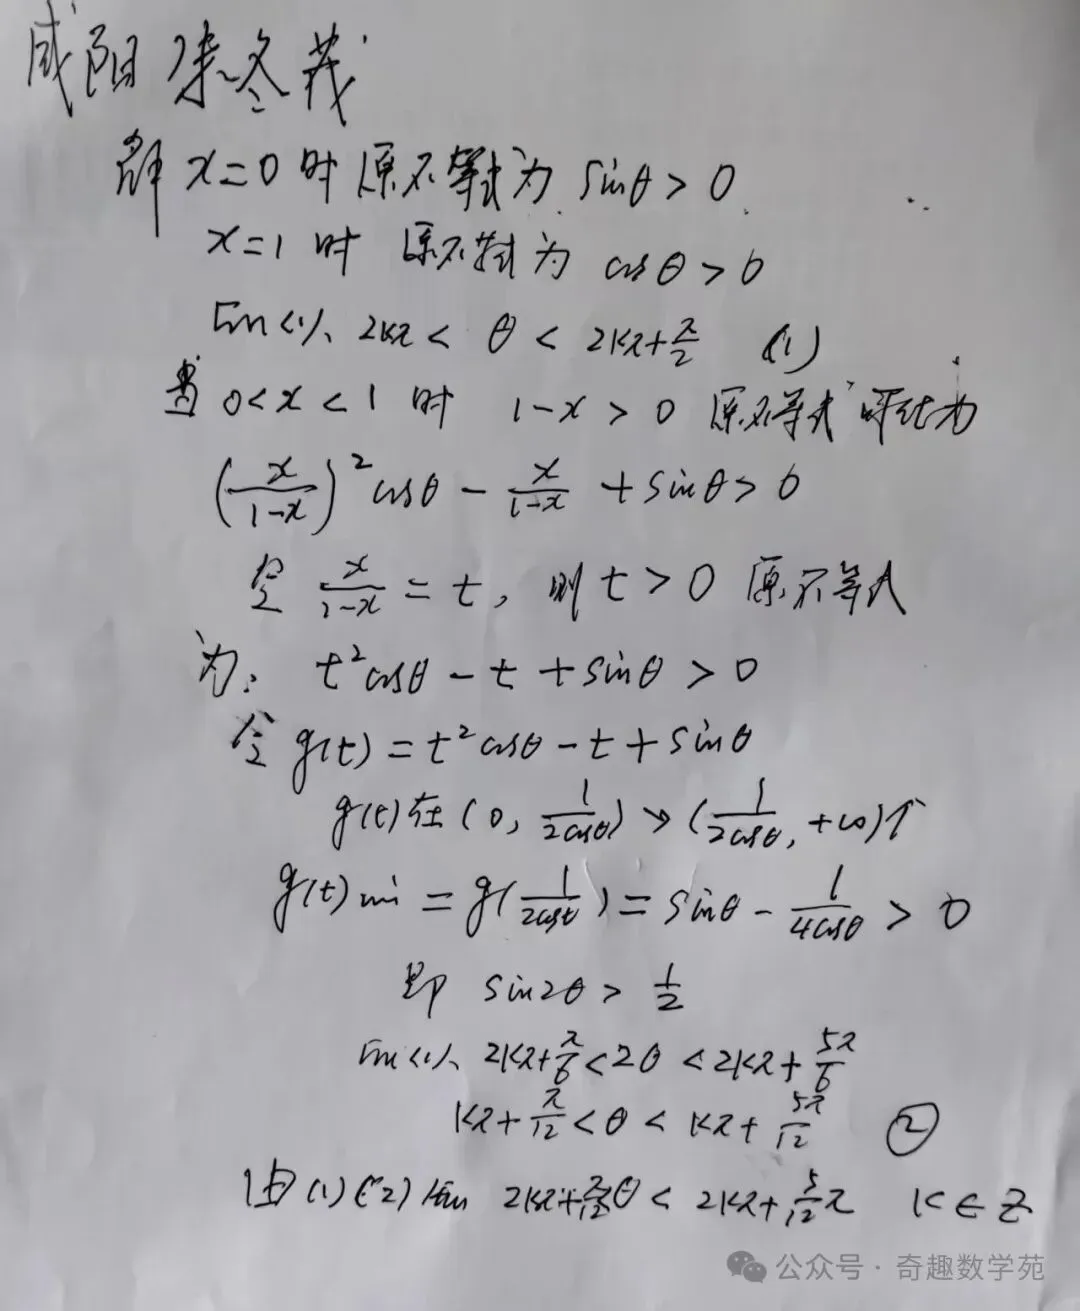 咸阳 朱冬茂
解 x=0 时 原不等式为 sinθ>0
x=1 时 原不等式为 cosθ>0
所以 2kπ < θ < 2kπ+π/2 (1)
当 0<x<1 时 1-x>0 原不等式可化为
(x/(1-x))²cosθ - x/(1-x) + sinθ>0
令 x/(1-x) = t, 则 t>0 原不等式
为: t²cosθ - t + sinθ > 0
令 g(t) = t²cosθ - t + sinθ
g(t) 在 (0, 1/(2cosθ)) ↘ (1/(2cosθ), +∞) ↑
g(t) min = g(1/(2cosθ)) = sinθ - 1/(4cosθ) > 0
即 sin2θ > 1/2
所以 2kπ+π/6 < 2θ < 2kπ+5π/6
kπ+π/12 < θ < kπ+5π/12 ②
由 (1) (2) 知 2kπ+π/12 θ < 2kπ+5/12 π k∈Z
公众号·奇趣数学苑